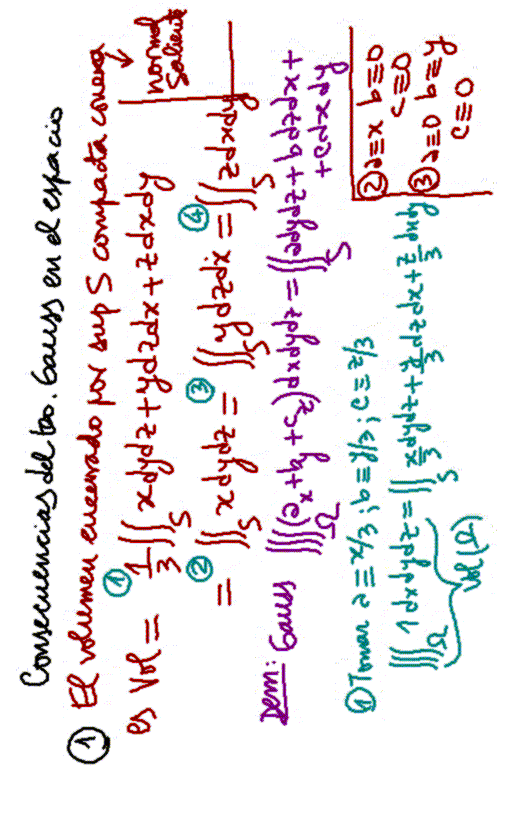 Consecuencias del teo. Gauss en el espacio
① El volumen encerrado por sup S compacta conexa
↓
normal
saliente
es Vol = ① 1/3 ∬_S x dy dz + y dz dx + z dx dy
= ② ∬_S x dy dz = ③ ∬_S y dz dx = ④ ∬_S z dx dy
Dem: Gauss ∭_Ω (a_x + b_y + c_z) dx dy dz = ∬_S a dy dz + b dz dx +
+ c dx dy
① Tomar a ≡ x/3 ; b ≡ y/3 ; c ≡ z/3
∭_Ω 1 dx dy dz = ∬_S x/3 dy dz + y/3 dz dx + z/3 dx dy
Vol(Ω)
② a ≡ x b ≡ 0
c ≡ 0
③ a ≡ 0 b ≡ y
c ≡ 0